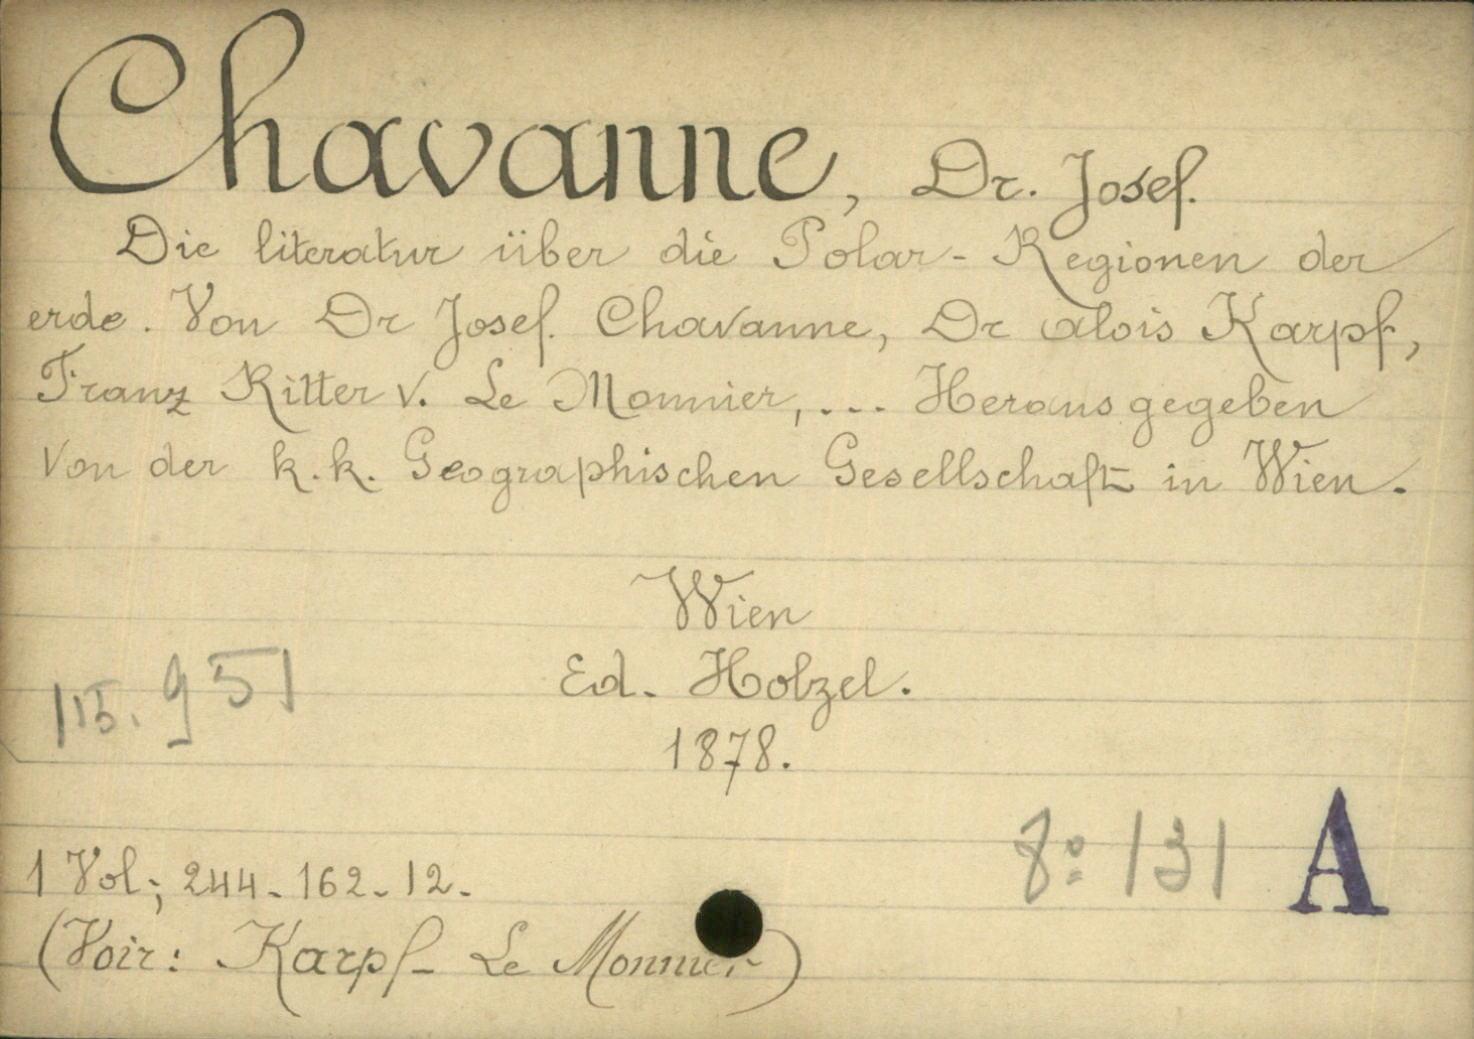 Chavanne, Dr. Josef.
Die literatur über die Polar-Regionen der
erde. Von Dr Josef. Chavanne, Dr alois Karpf,
Franz Ritter v. Le Monnier, ... Herausgegeben
Von der k.k. Geographischen Gesellschaft in Wien.
Wien
Ed. Holzel.
1878.
115.951
8º 131 A
1 Vol; 244-162-12-
(Voir: Karpf- Le Monnier)